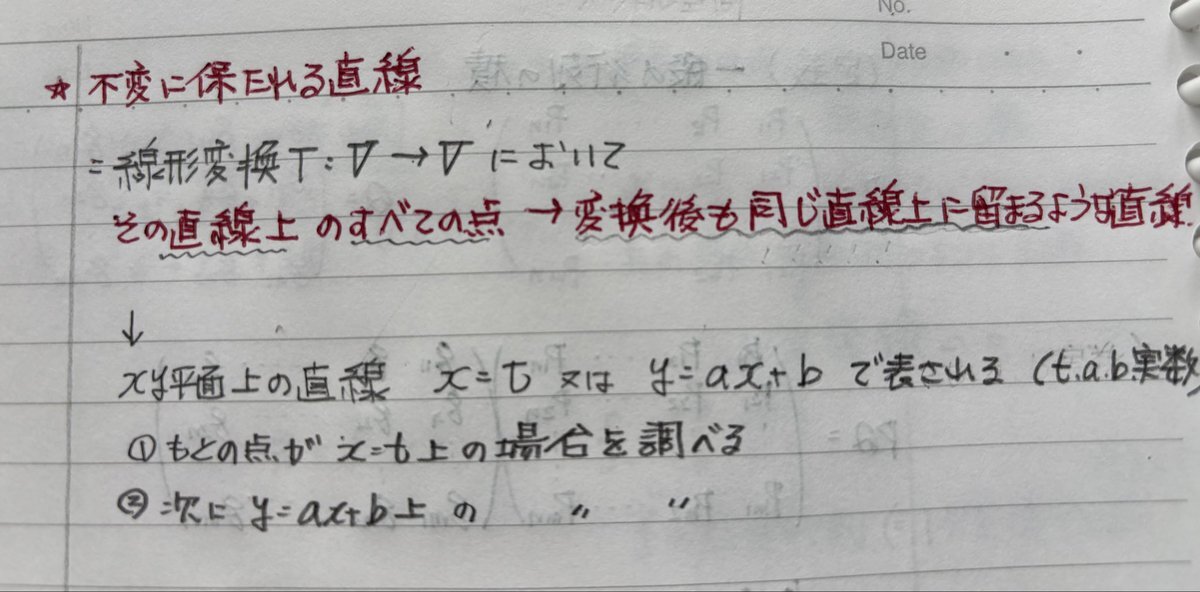 No.
Date
☆ 不変に保たれる直線
= 線形変換T: V → V において
その直線上のすべての点 → 変換後も同じ直線上に留まるような直線
↓
xy平面上の直線 x=t 又は y=ax+b で表される (t.a.b.実数
① もとの点が x=t上の場合を調べる
② 次に y=ax+b上の 〃 〃